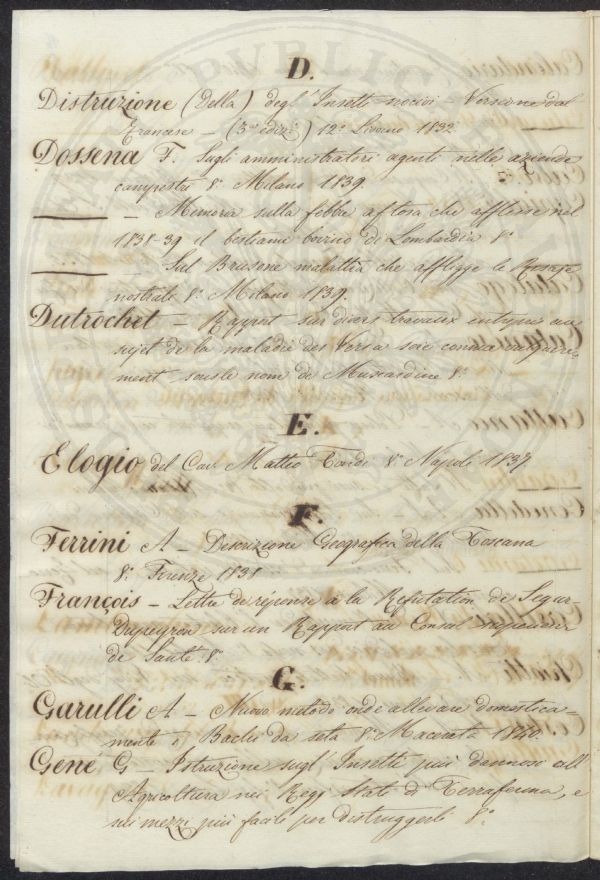 D.
Distruzione (Della) degl'Insetti nocivi – Versione dal
Francese – (3ª ediz:) 12º Livorno 1832
Dossena F. Sugli amministratori agenti nelle aziende
campestri 8º Milano 1839.
– Memoria sulla febbre aftosa che afflisse nel
1838-39 il bestiame bovino di Lombardia 8º
– Sul Brusone malattia che affligge le Risaje
nostrali 8º Milano 1839.
Dutrochet – Rapport sur divers travaux entrepris au
sujet de la maladie des Vers a soie connue vulgaire-
ment sous le nom de Muscardine 8º
E.
Elogio del Cav. Matteo Tondi 8º Napoli 1837
F.
Ferrini A – Descrizione Geografica della Toscana
8º Firenze 1838
François – Lettre de réponse a la Refutation de Segur-
Dupeyron sur un Rapport au Conseil superieur
de Santé 8º
G.
Garulli A – Nuovo metodo onde allevare domestica-
mente i Bachi da seta 8º Macerata 1840.
Gené G – Istruzione sugl'Insetti più dannosi all'
Agricoltura nei Regj Stati di Terraferma, e
sui mezzi più facili per distruggerli 8º